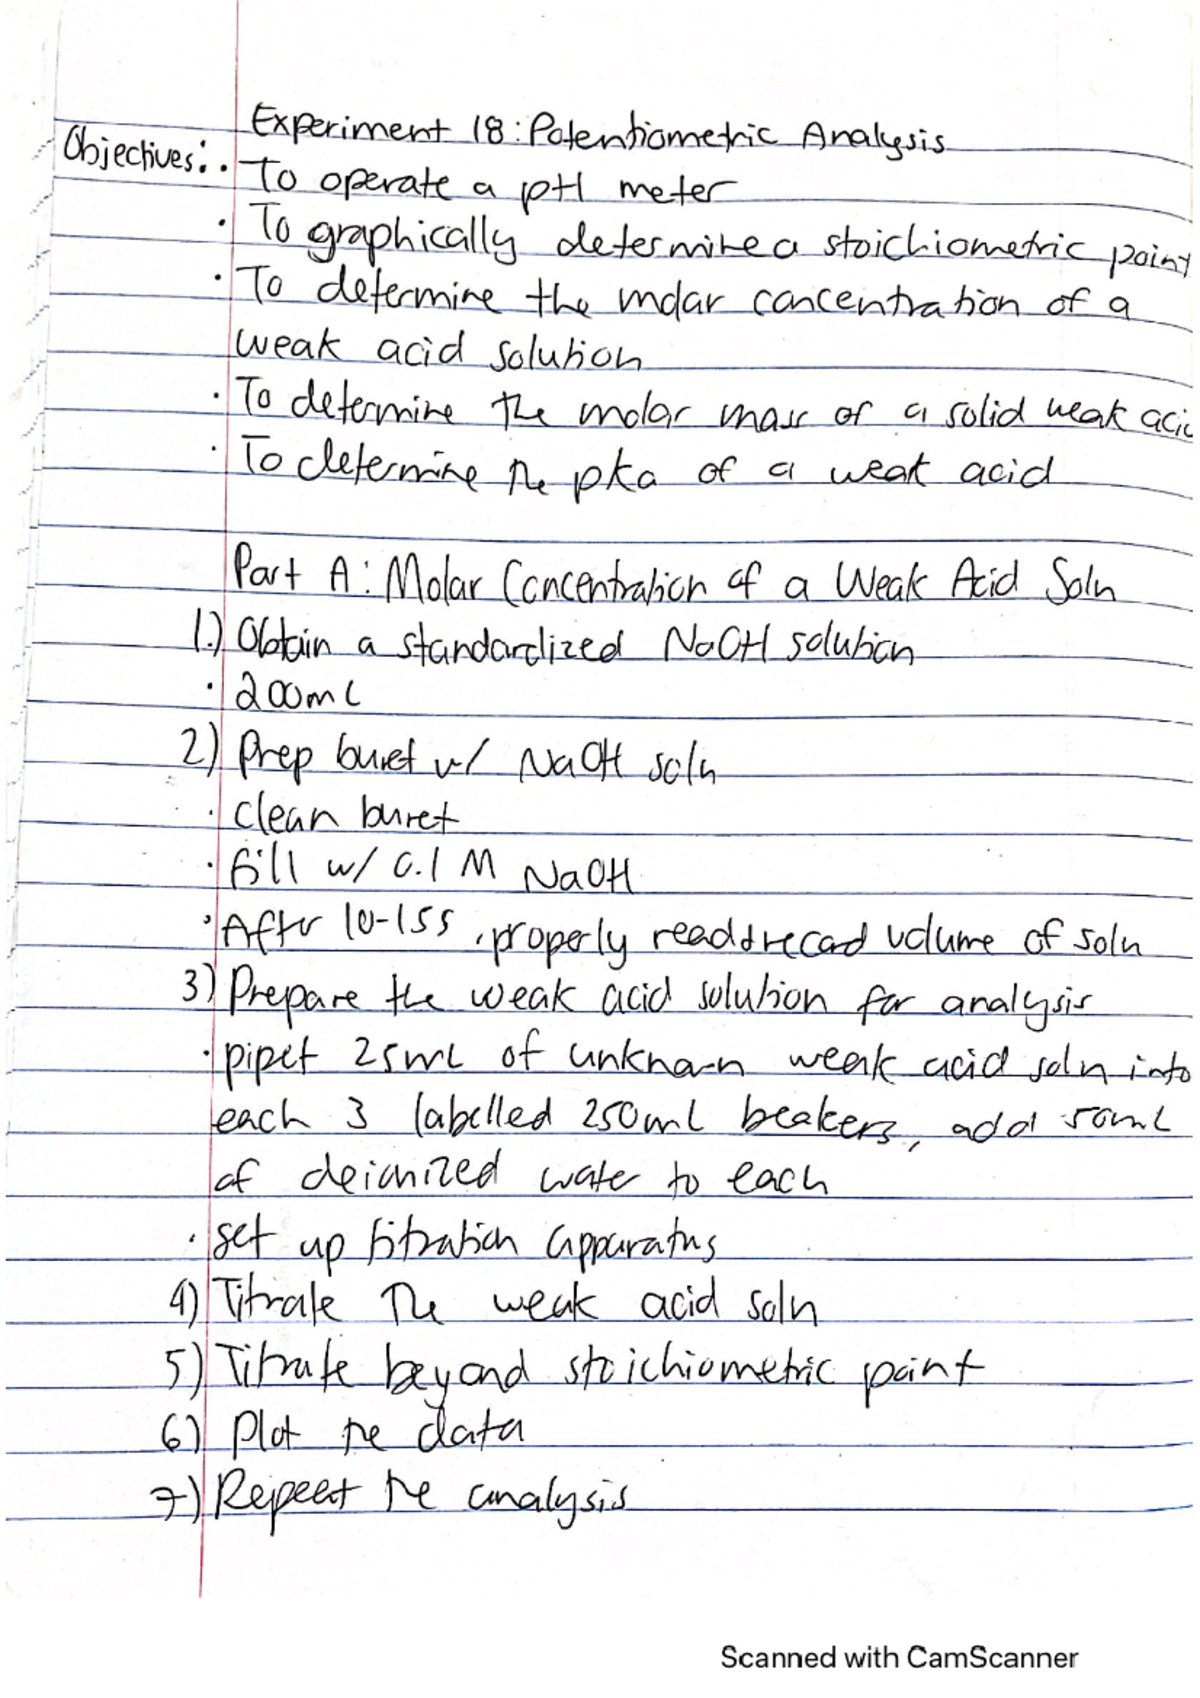 Experiment 18: Potentiometric Analysis
Objectives: • To operate a pH meter
• To graphically determine a stoichiometric point
• To determine the molar concentration of a
weak acid solution
• To determine the molar mass of a solid weak acid
• To determine the pka of a weak acid
Part A: Molar Concentration of a Weak Acid Soln
1.) Obtain a standardized NaOH solution
• 200mL
2) Prep buret w/ NaOH soln
• clean buret
• fill w/ 0.1 M NaOH
• After 10-15s, properly read & record volume of soln
3) Prepare the weak acid solution for analysis
• pipet 25mL of unknown weak acid soln into
each 3 labelled 250mL beakers, add 50mL
of deionized water to each
• set up titration apparatus
4) Titrate the weak acid soln
5) Titrate beyond stoichiometric point
6) Plot the data
7) Repeat the analysis
Scanned with CamScanner